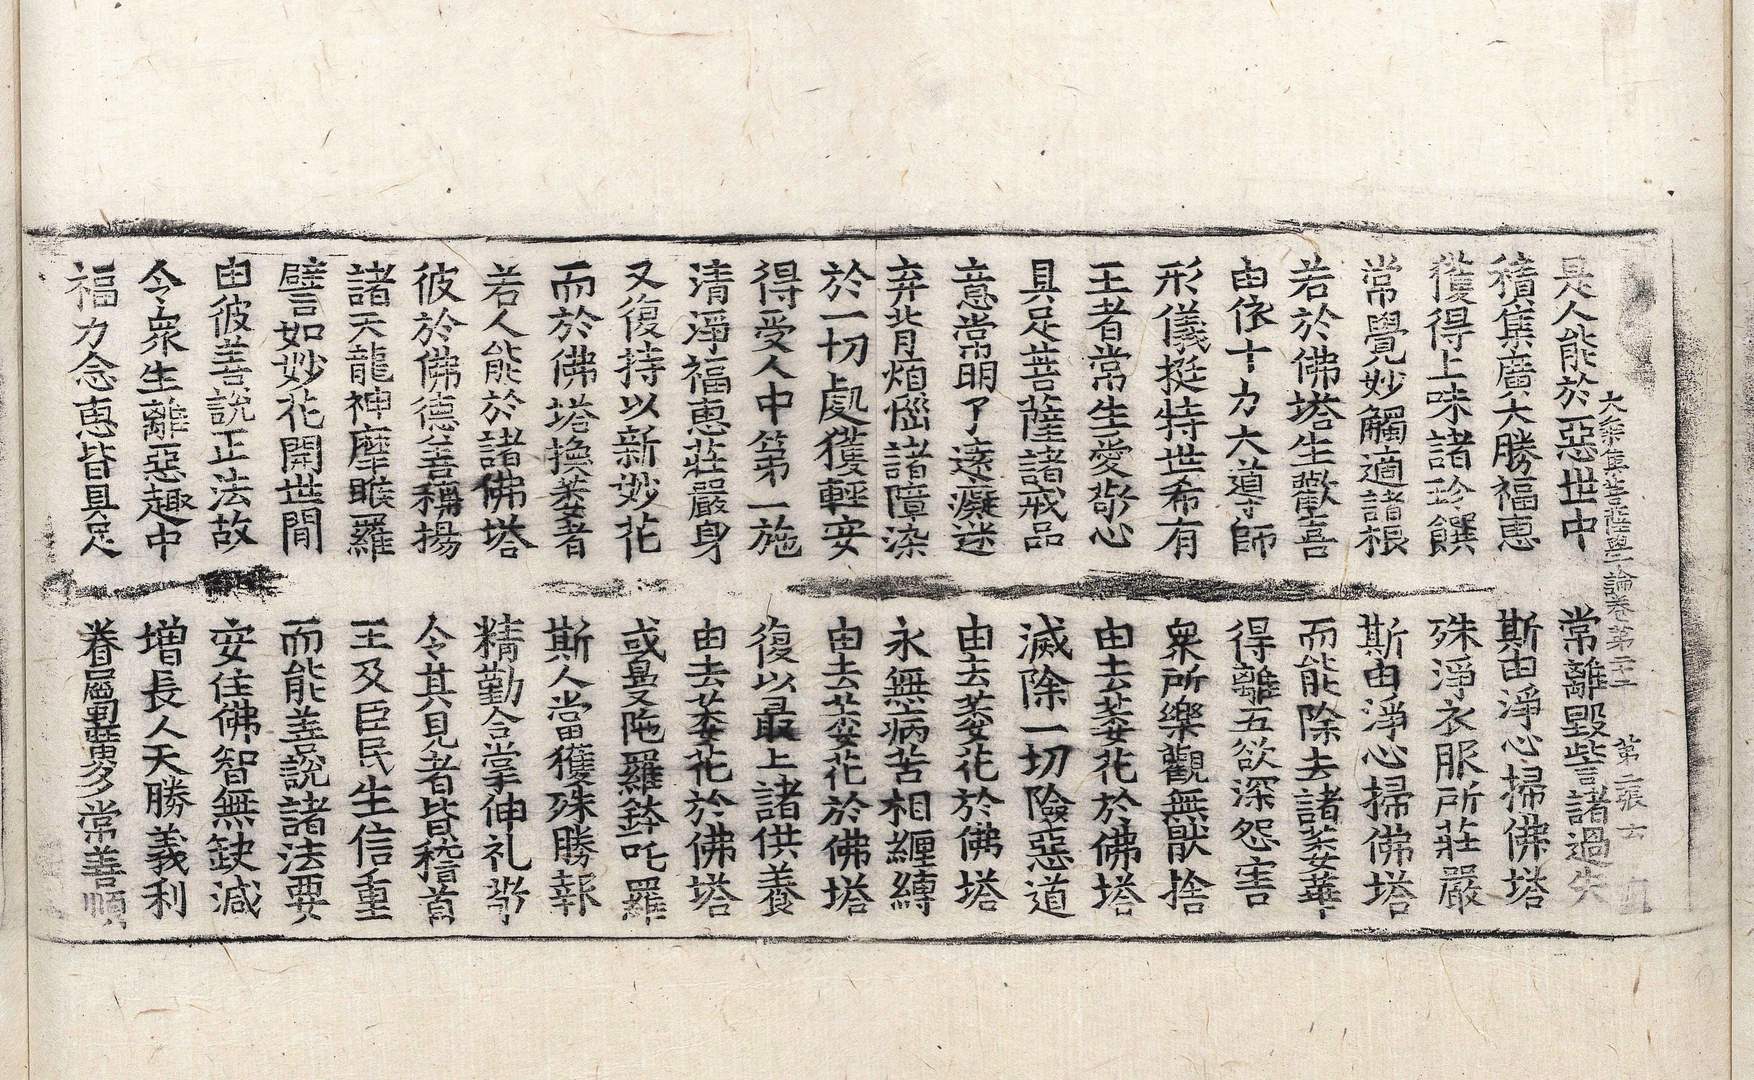 大乘集菩薩學論卷第二十二 第二張
是人能於惡世中 常離毀呰諸過失
積集廣大勝福惠 斯由淨心掃佛塔
獲得上味諸珍饌 殊淨衣服所莊嚴
常覺妙觸適諸根 斯由淨心掃佛塔
若於佛塔生歡喜 而能除去諸萎華
由依十力大導師 得離五欲深怨害
形儀挺特世希有 衆所樂觀無猒捨
王者常生愛敬心 由去萎花於佛塔
具足菩薩諸戒品 滅除一切險惡道
意常明了遠癡迷 由去萎花於佛塔
弃背煩惱諸障染 永無病苦相纏縛
於一切處獲輕安 由去萎花於佛塔
得受人中第一施 復以最上諸供養
清淨福惠莊嚴身 由去萎花於佛塔
又復持以新妙花 或曼陁羅鉢吒羅
而於佛塔換萎者 斯人當獲殊勝報
若人能於諸佛塔 精勤合掌伸礼敬
彼於佛德善稱揚 令其見者皆稽首
諸天龍神摩睺羅 王及臣民生信重
譬如妙花開世間 而能善說諸法要
由彼善說正法故 安住佛智無缺減
令衆生離惡趣中 增長人天勝義利
福力念惠皆具足 眷屬豐多常善順